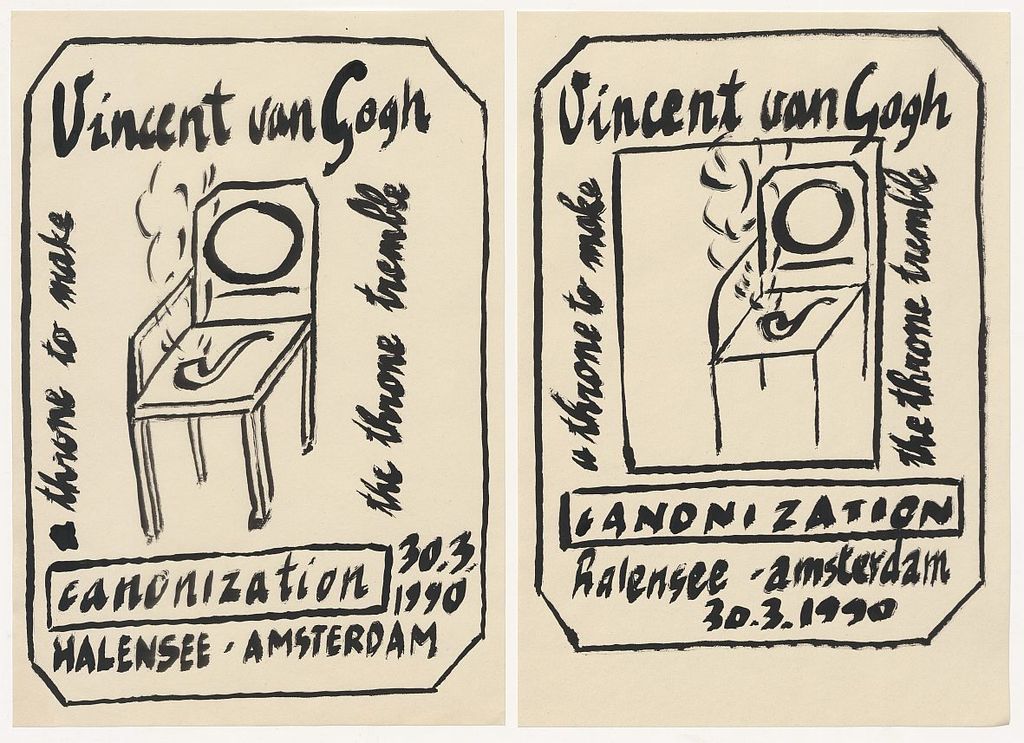 Vincent van Gogh
a throne to make
the throne tremble
canonization
30.3.
1990
HALENSEE - AMSTERDAM
Vincent van Gogh
a throne to make
the throne tremble
CANONIZATION
Halensee - amsterdam
30.3.1990